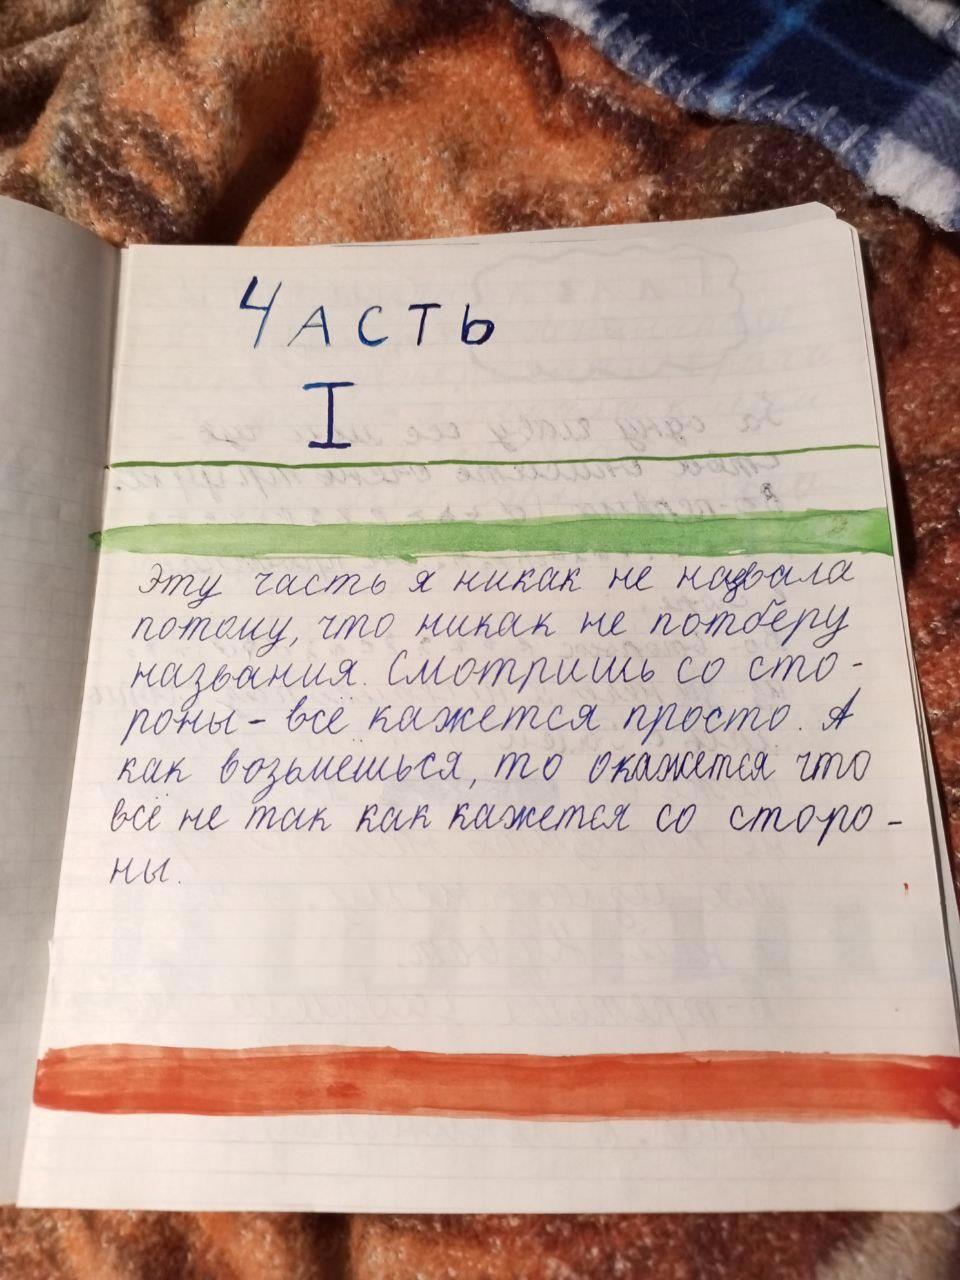 Часть
I
Эту часть я никак не назвала
потому, что никак не потберу
названия. Смотришь со сто-
роны - всё кажется просто. А
как возьмешься, то окажется что
всё не так как кажется со сторо-
ны.